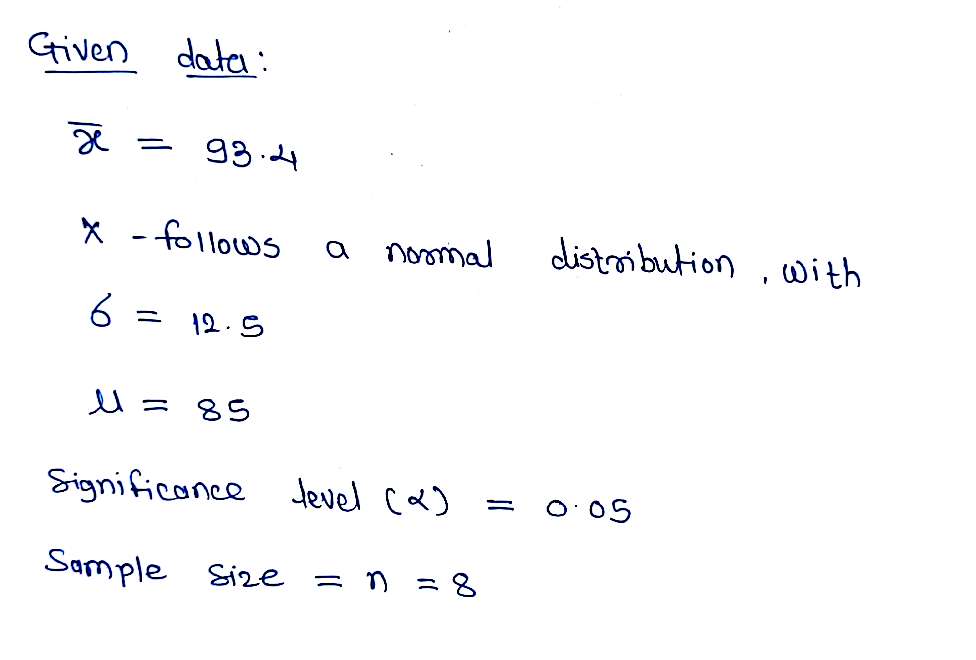 Given data:
x̄ = 93.4
X - follows a normal distribution, with
σ = 12.5
μ = 85
Significance level (α) = 0.05
Sample size = n = 8